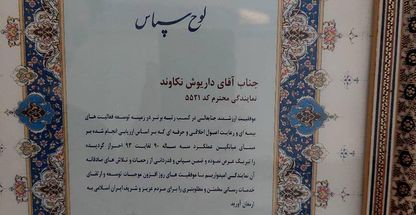 لوح سپاس
جناب آقای داریوش تکاوند
نمایندگی محترم کد ۵۵۲۱
موفقیت ارزشمند جنابعالی در کسب رتبه برتر در زمینه توسعه فعالیت های
بیمه ای و رعایت اصول اخلاقی و حرفه ای که بر اساس ارزیابی انجام شده بر
مبنای میانگین عملکرد سه ساله ۹۰ لغایت ۹۲ احراز گردیده
را تبریک عرض نموده و ضمن سپاس و قدردانی از زحمات و تلاش های صادقانه
آن نمایندگی امیدواریم با موفقیت های روز افزون موجبات توسعه و ارتقای
خدمات رسانی مطمئن و مطلوبتری را برای مردم عزیز و شریف ایران اسلامی به
ارمغان آورید